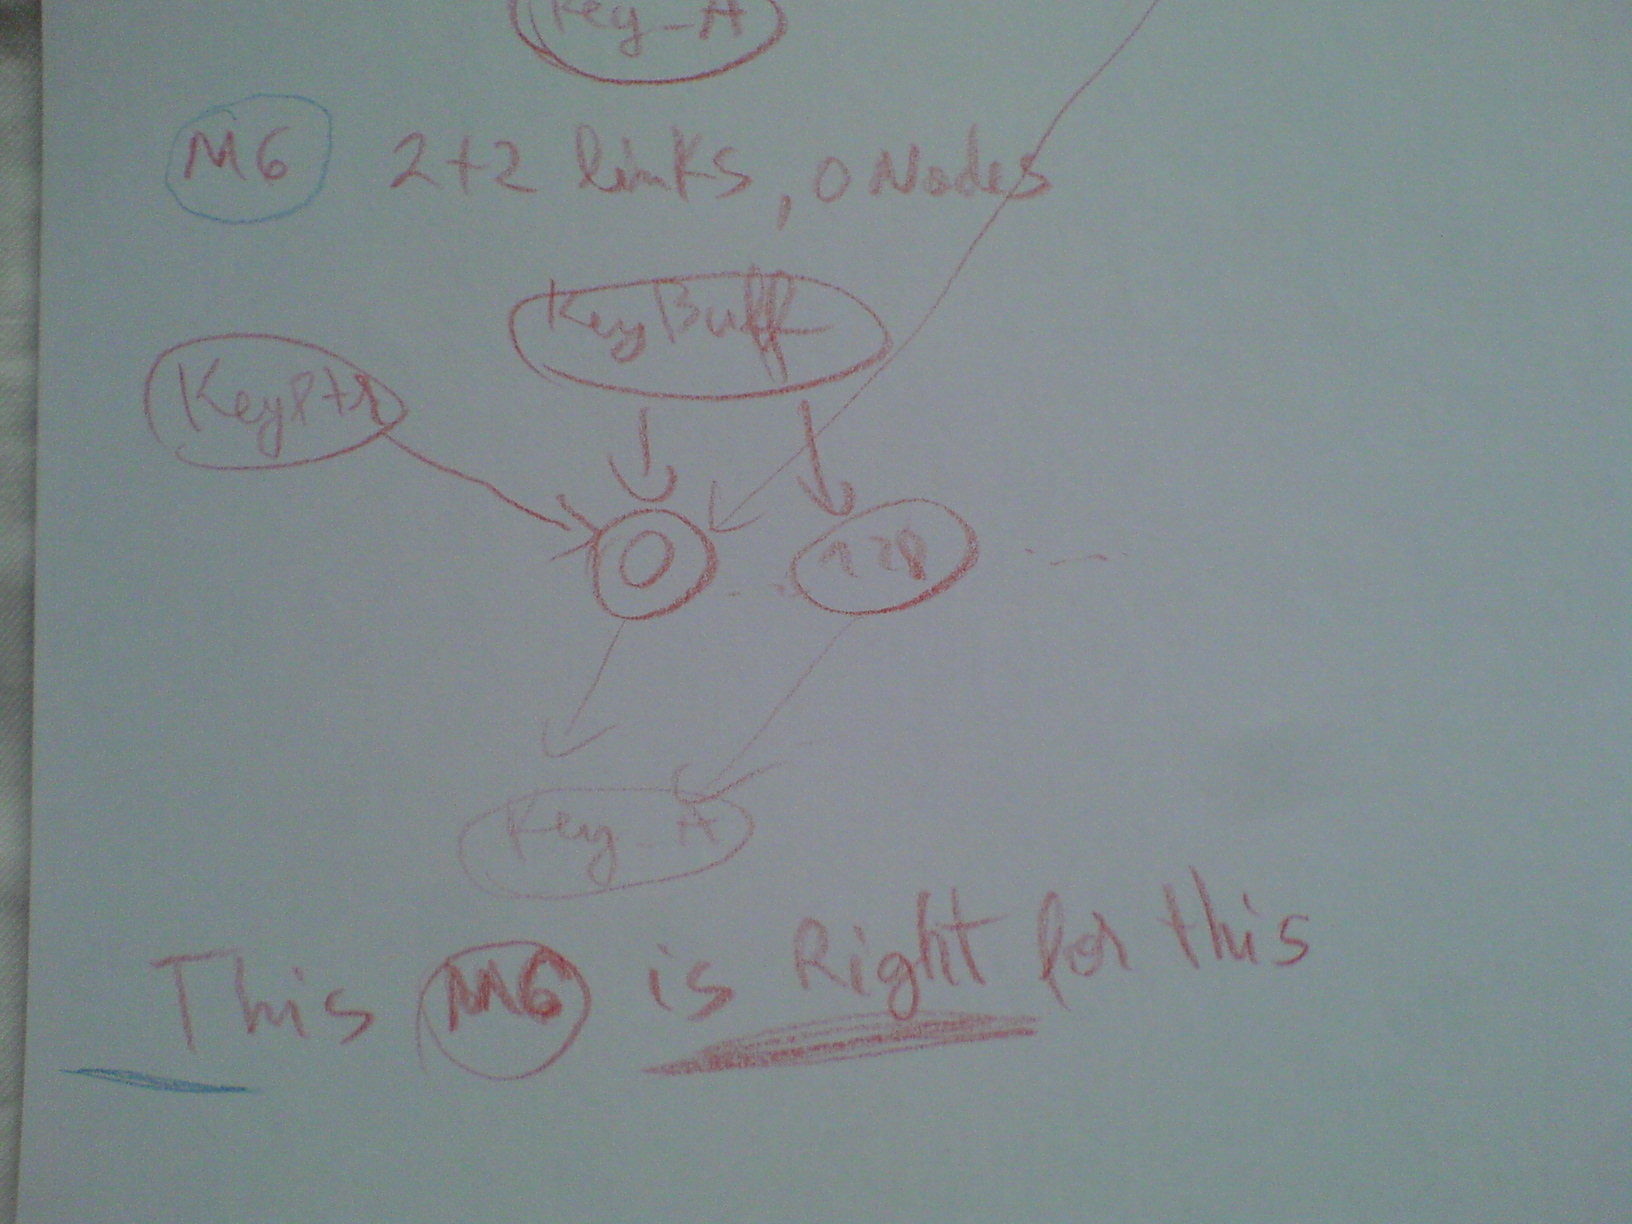 Key_A
M6 2+2 links, 0 Nodes
KeyBuff
KeyPtr
0 128
Key_A
This M6 is Right for this